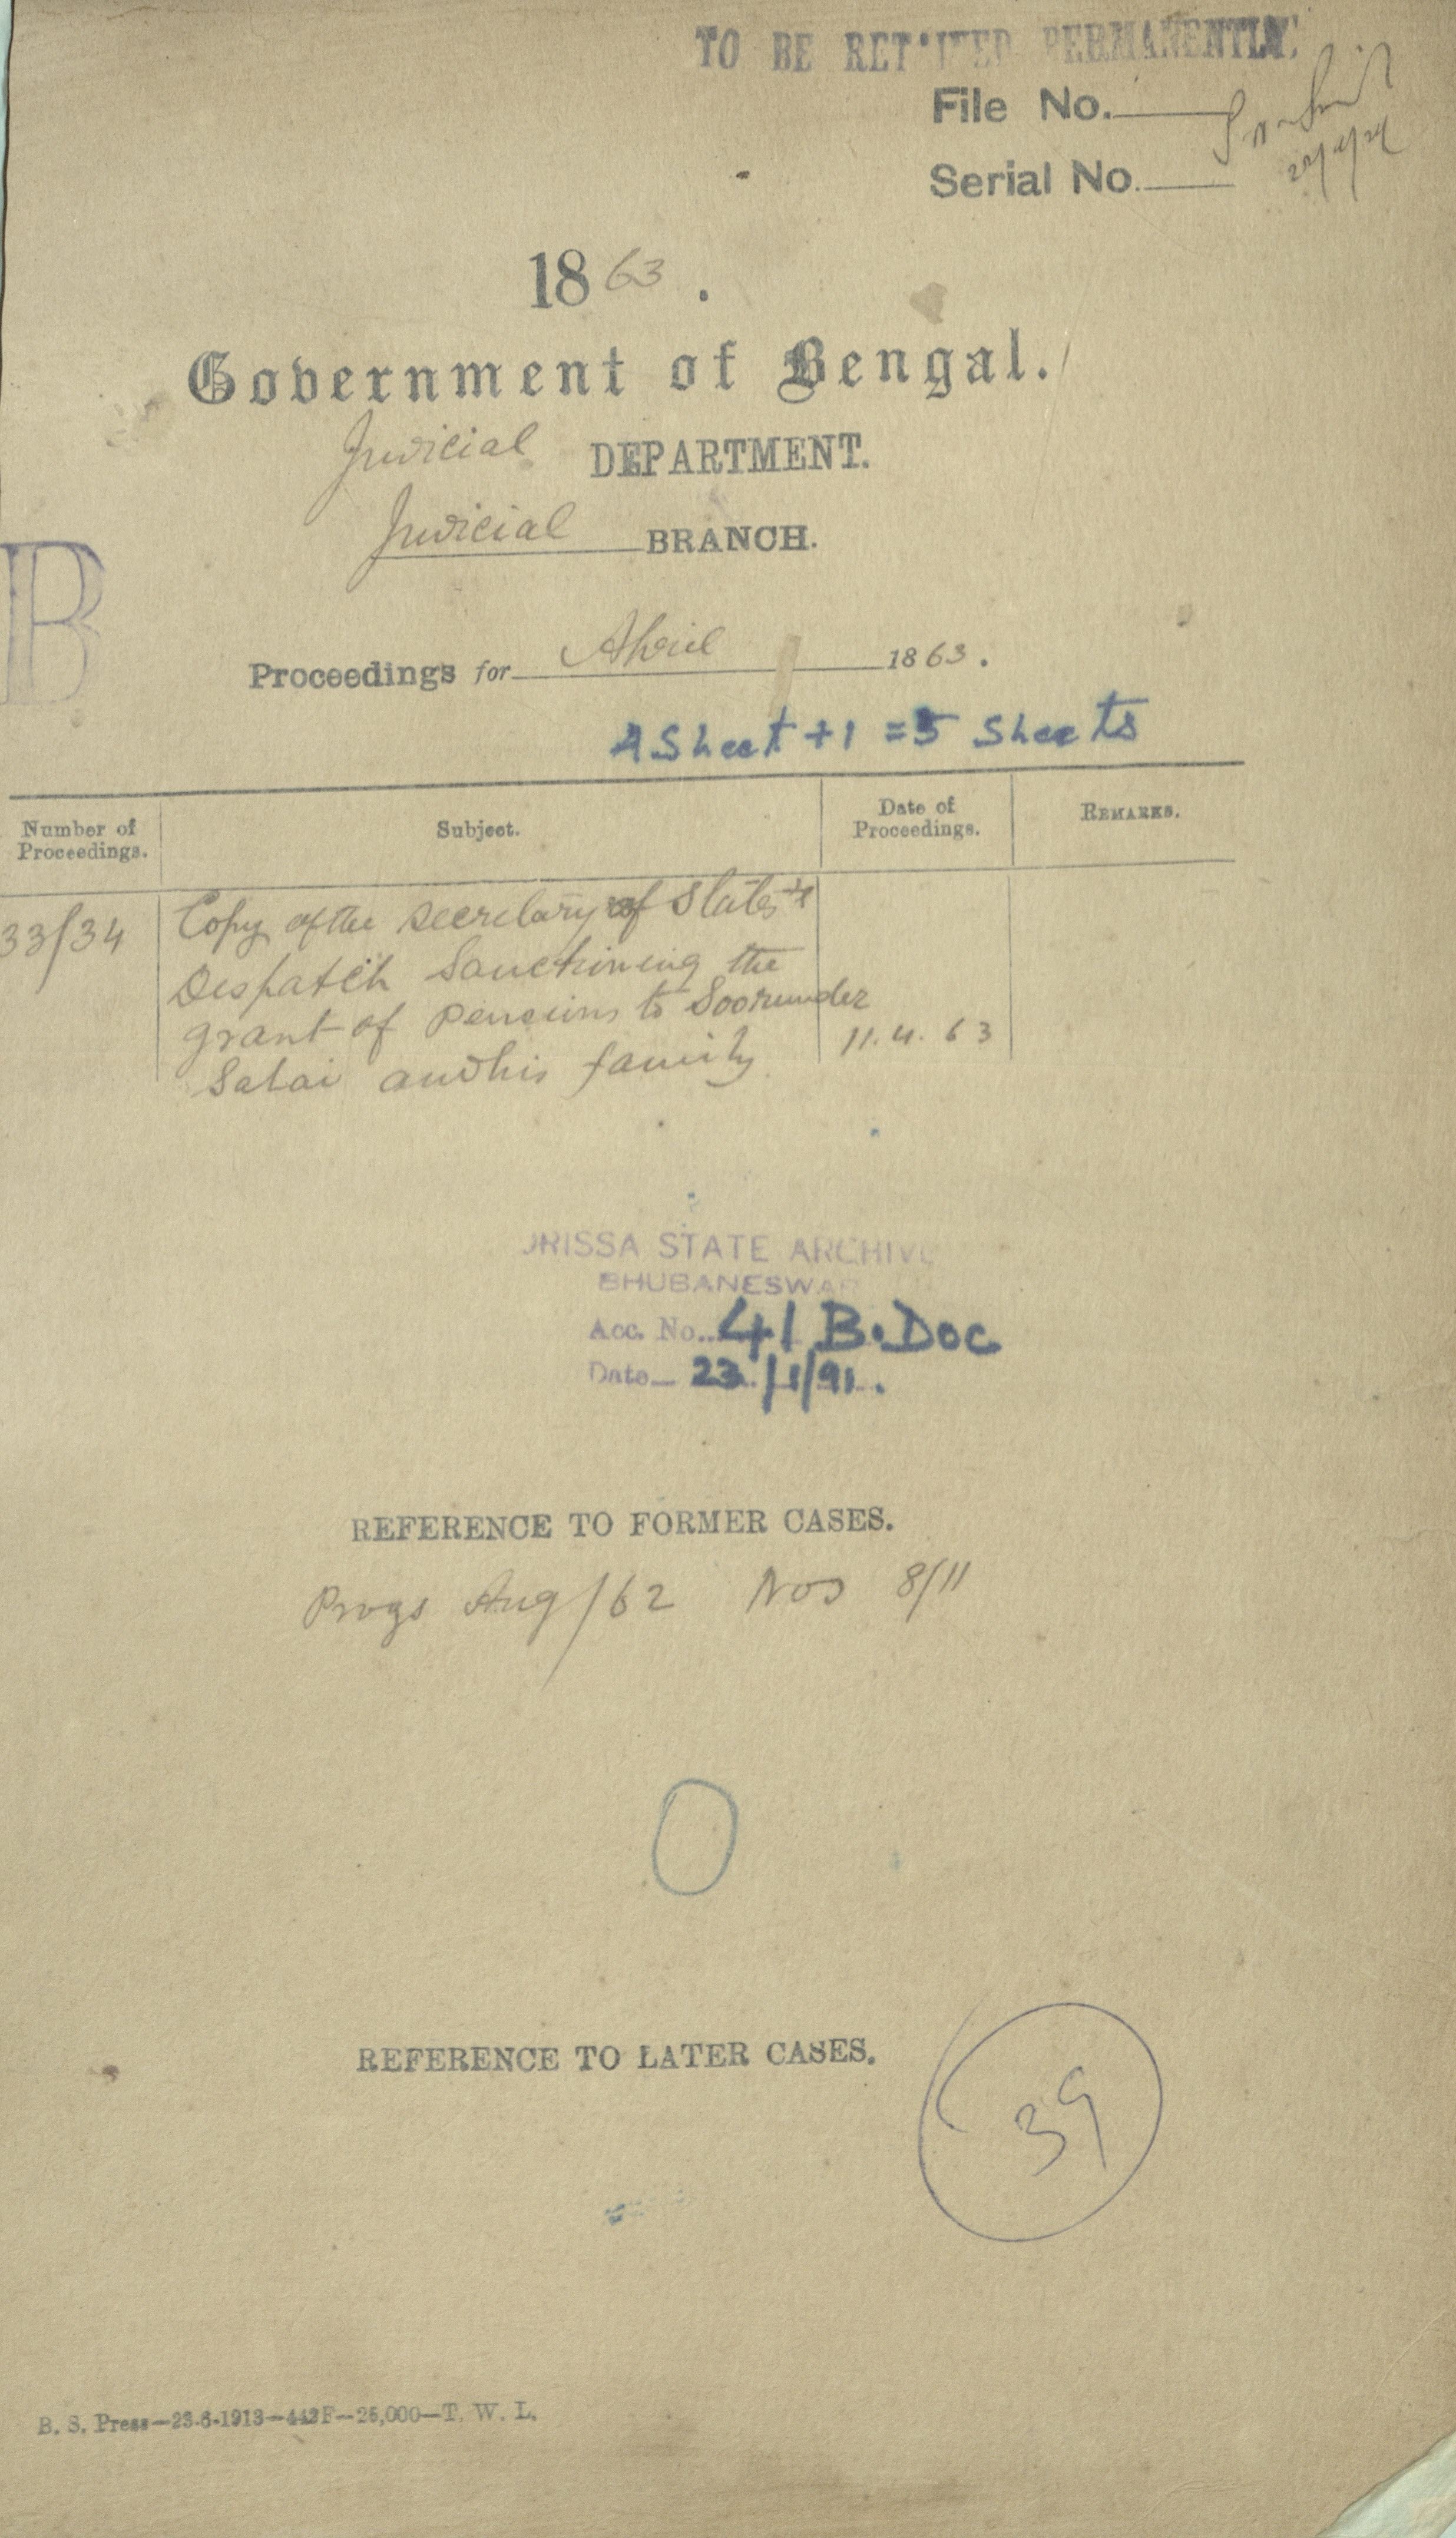 TO BE RETAINED PERMANENTLY.
File No.
Serial No.
1863.
Government of Bengal.
Judicial DEPARTMENT.
Judicial BRANCH.
B
Proceedings for April 1863.
4 Sheet + 1 = 5 Sheets
Number of Proceedings.
Subject.
Date of Proceedings.
REMARKS.
33/34
Copy of the Secretary of State's
Despatch Sanctioning the
grant of Pensions to Soorunder
Salai and his family
11.4.63
ORISSA STATE ARCHIV
BHUBANESWAR
Acc. No. 41 B.Doc
Date 23/1/91.
REFERENCE TO FORMER CASES.
Progs Aug/62 Nos 8/11
0
REFERENCE TO LATER CASES.
39
B. S. Press—23-6-1913—442F—25,000—T. W. L.